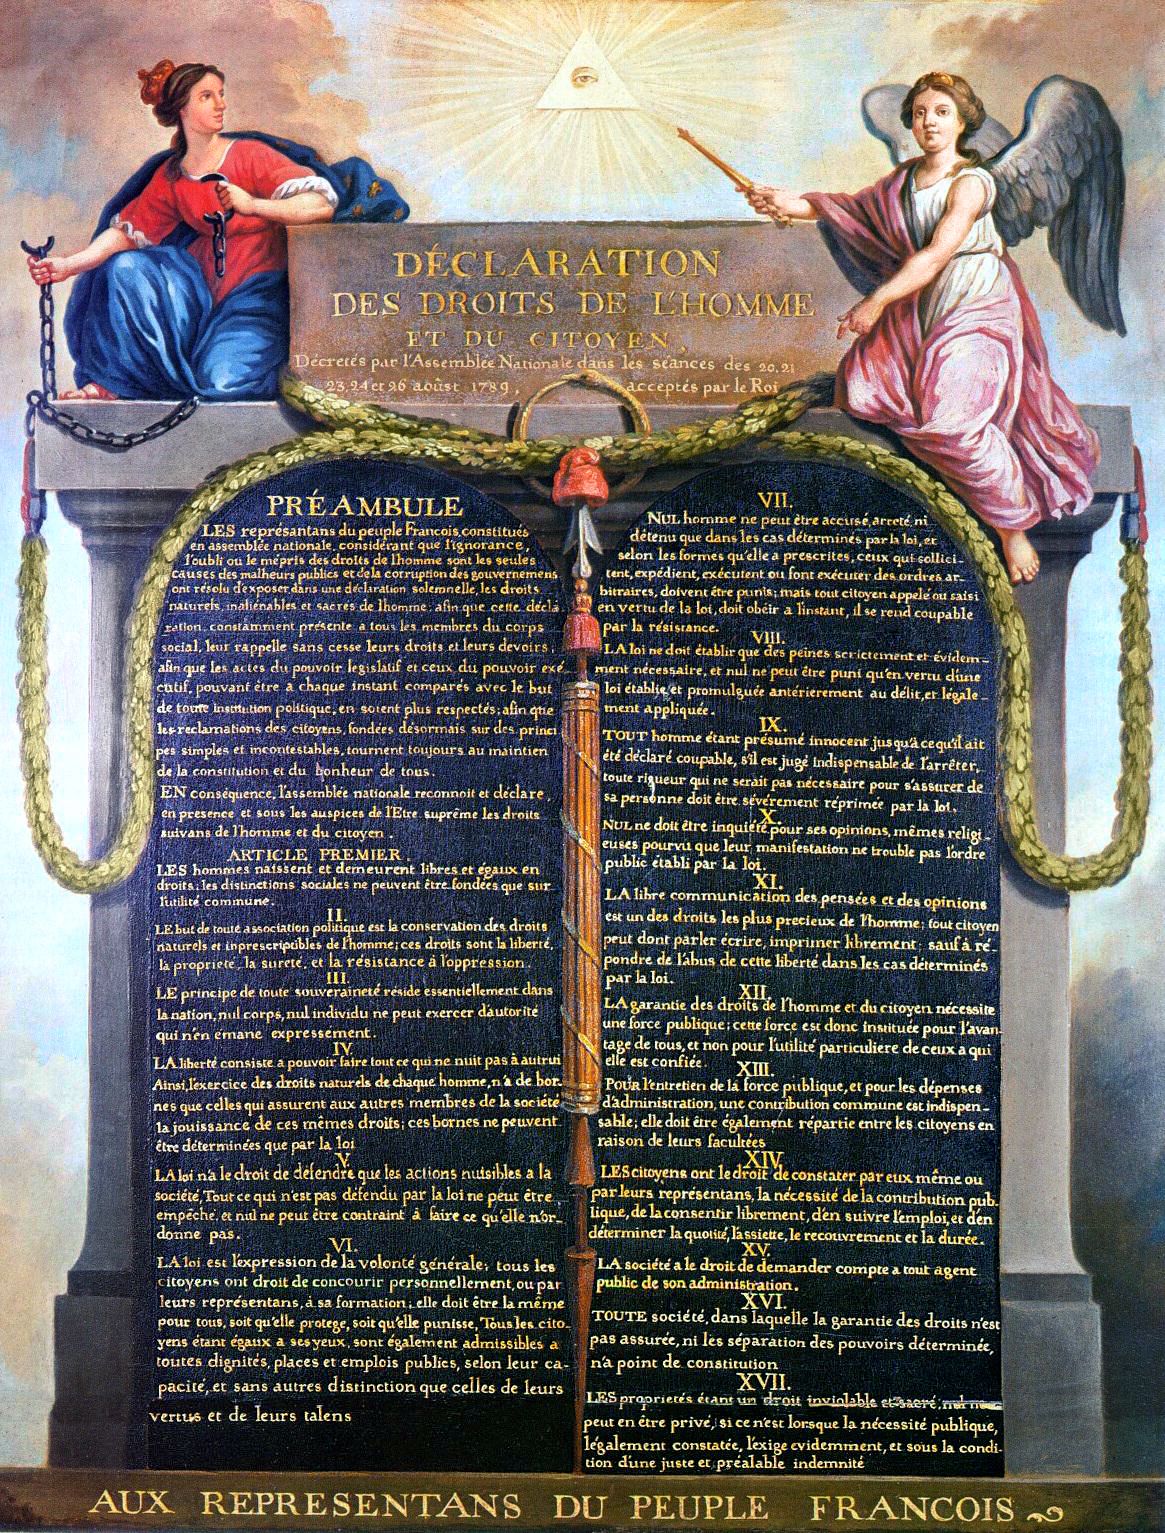 DÉCLARATION
DES DROITS DE L'HOMME
ET DU CITOYEN,
Décretés par l'Assemblée Nationale dans les séances des 20, 21
23, 24 et 26 août 1789, acceptés par le Roi
PRÉAMBULE
LES représantans du peuple Francois, constitués
en assemblée nationale, considérant que l'ignorance,
l'oubli ou le mépris des droits de l'homme sont les seules
causes des malheurs publics et de la corruption des gouvernemens
ont résolu d'exposer dans une déclaration solemnelle, les droits
naturels, inaliénables et sacrés de l'homme; afin que cette décla
ration, constamment présente a tous les membres du corps
social, leur rappelle sans cesse leurs droits et leurs devoirs;
afin que les actes du pouvoir legislatif et ceux du pouvoir exé
cutif, pouvant être a chaque instant comparés avec le but
de toute institution politique, en soient plus respectés; afin que
les reclamations des citoyens, fondées désormais sur des princi
pes simples et incontestables, tournent toujours au maintien
de la constitution et du bonheur de tous.
EN conséquence, l'assemblée nationale reconnoit et déclare,
en presence et sous les auspices de l'Etre suprême les droits
suivans de l'homme et du citoyen.
ARTICLE PREMIER.
LES hommes naissent et demeurent libres et égaux en
droits; les distinctions sociales ne peuvent être fondées que sur
l'utilité commune.
II.
LE but de toute association politique est la conservation des droits
naturels et inprescriptibles de l'homme; ces droits sont la liberté,
la propriete, la sureté, et la résistance à l'oppression.
III.
LE principe de toute souveraineté réside essentiellement dans
la nation, nul corps, nul individu ne peut exercer d'autorité
qui n'en emane expressement.
IV.
LA liberté consiste a pouvoir faire tout ce qui ne nuit pas à autrui
Ainsi, l'exercice des droits naturels de chaque homme, n'a de bor-
nes que celles qui assurent aux autres membres de la société
la jouissance de ces mêmes droits; ces bornes ne peuvent
être déterminées que par la loi
V.
LA loi n'a le droit de défendre que les actions nuisibles a la
société. Tout ce qui n'est pas défendu par la loi ne peut être
empéché, et nul ne peut être contraint à faire ce qu'elle n'or-
donne pas.
VI.
LA loi est l'expression de la volonté générale; tous les
citoyens ont droit de concourir personnellement, ou par
leurs représentans, à sa formation; elle doit être la même
pour tous, soit qu'elle protege, soit qu'elle punisse, Tous les cito-
yens étant égaux a ses yeux, sont également admissibles a
toutes dignités, places et emplois publics, selon leur ca-
pacité, et sans autres distinction que celles de leurs
vertus et de leurs talens
VII.
NUL homme ne peut être accusé, arreté, ni
détenu que dans les cas déterminés par la loi, et
selon les formes qu'elle a prescrites, ceux qui sollici-
tent, expédient, exécutent ou font exécuter des ordres ar-
bitraires, doivent être punis; mais tout citoyen appelé ou saisi
en vertu de la loi, doit obéir a l'instant, il se rend coupable
par la résistance.
VIII.
LA loi ne doit établir que des peines strictement et évidem-
ment nécessaire, et nul ne peut être puni qu'en vertu d'une
loi établie, et promulguée antérierement au délit, et légale-
ment appliquée.
IX.
TOUT homme étant présumé innocent jusqu'à ce qu'il ait
été déclaré coupable, s'il est jugé indispensable de l'arrêter,
toute rigueur qui ne serait pas nécessaire pour s'assurer de
sa personne doit être sévérement réprimée par la loi.
X.
NUL ne doit être inquiété pour ses opinions, mêmes religi-
euses pourvu que leur manifestation ne trouble pas l'ordre
public établi par la loi.
XI.
LA libre communication des pensées et des opinions
est un des droits les plus precieux de l'homme; tout citoyen
peut dont parler écrire, imprimer librement; sauf à ré-
pondre de l'abus de cette liberté dans les cas déterminés
par la loi.
XII.
LA garantie des droits de l'homme et du citoyen nécessite
une force publique; cette force est donc instituée pour l'avan-
tage de tous, et non pour l'utilité particuliere de ceux a qui
elle est confiée.
XIII.
POUR l'entretien de la force publique, et pour les dépenses
d'administration, une contribution commune est indispen-
sable; elle doit être également répartie entre les citoyens en
raison de leurs facultées
XIV.
LES citoyens ont le droit de constater par eux même ou
par leurs représentans, la nécessité de la contribution pub-
lique, de la consentir librement, d'en suivre l'emploi, et d'en
déterminer la quotité, l'assiette, le recouvrement et la durée.
XV.
LA société a le droit de demander compte a tout agent
public de son administration.
XVI.
TOUTE société, dans laquelle la garantie des droits n'est
pas assurée, ni les séparation des pouvoirs déterminée,
n'a point de constitution
XVII.
LES proprietés étant un droit inviolable et sacré, nul ne
peut en être privé, si ce n'est lorsque la nécessité publique,
légalement constatée, l'exige evidemment, et sous la condi-
tion d'une juste et préalable indemnité
AUX REPRESENTANS DU PEUPLE FRANCOIS